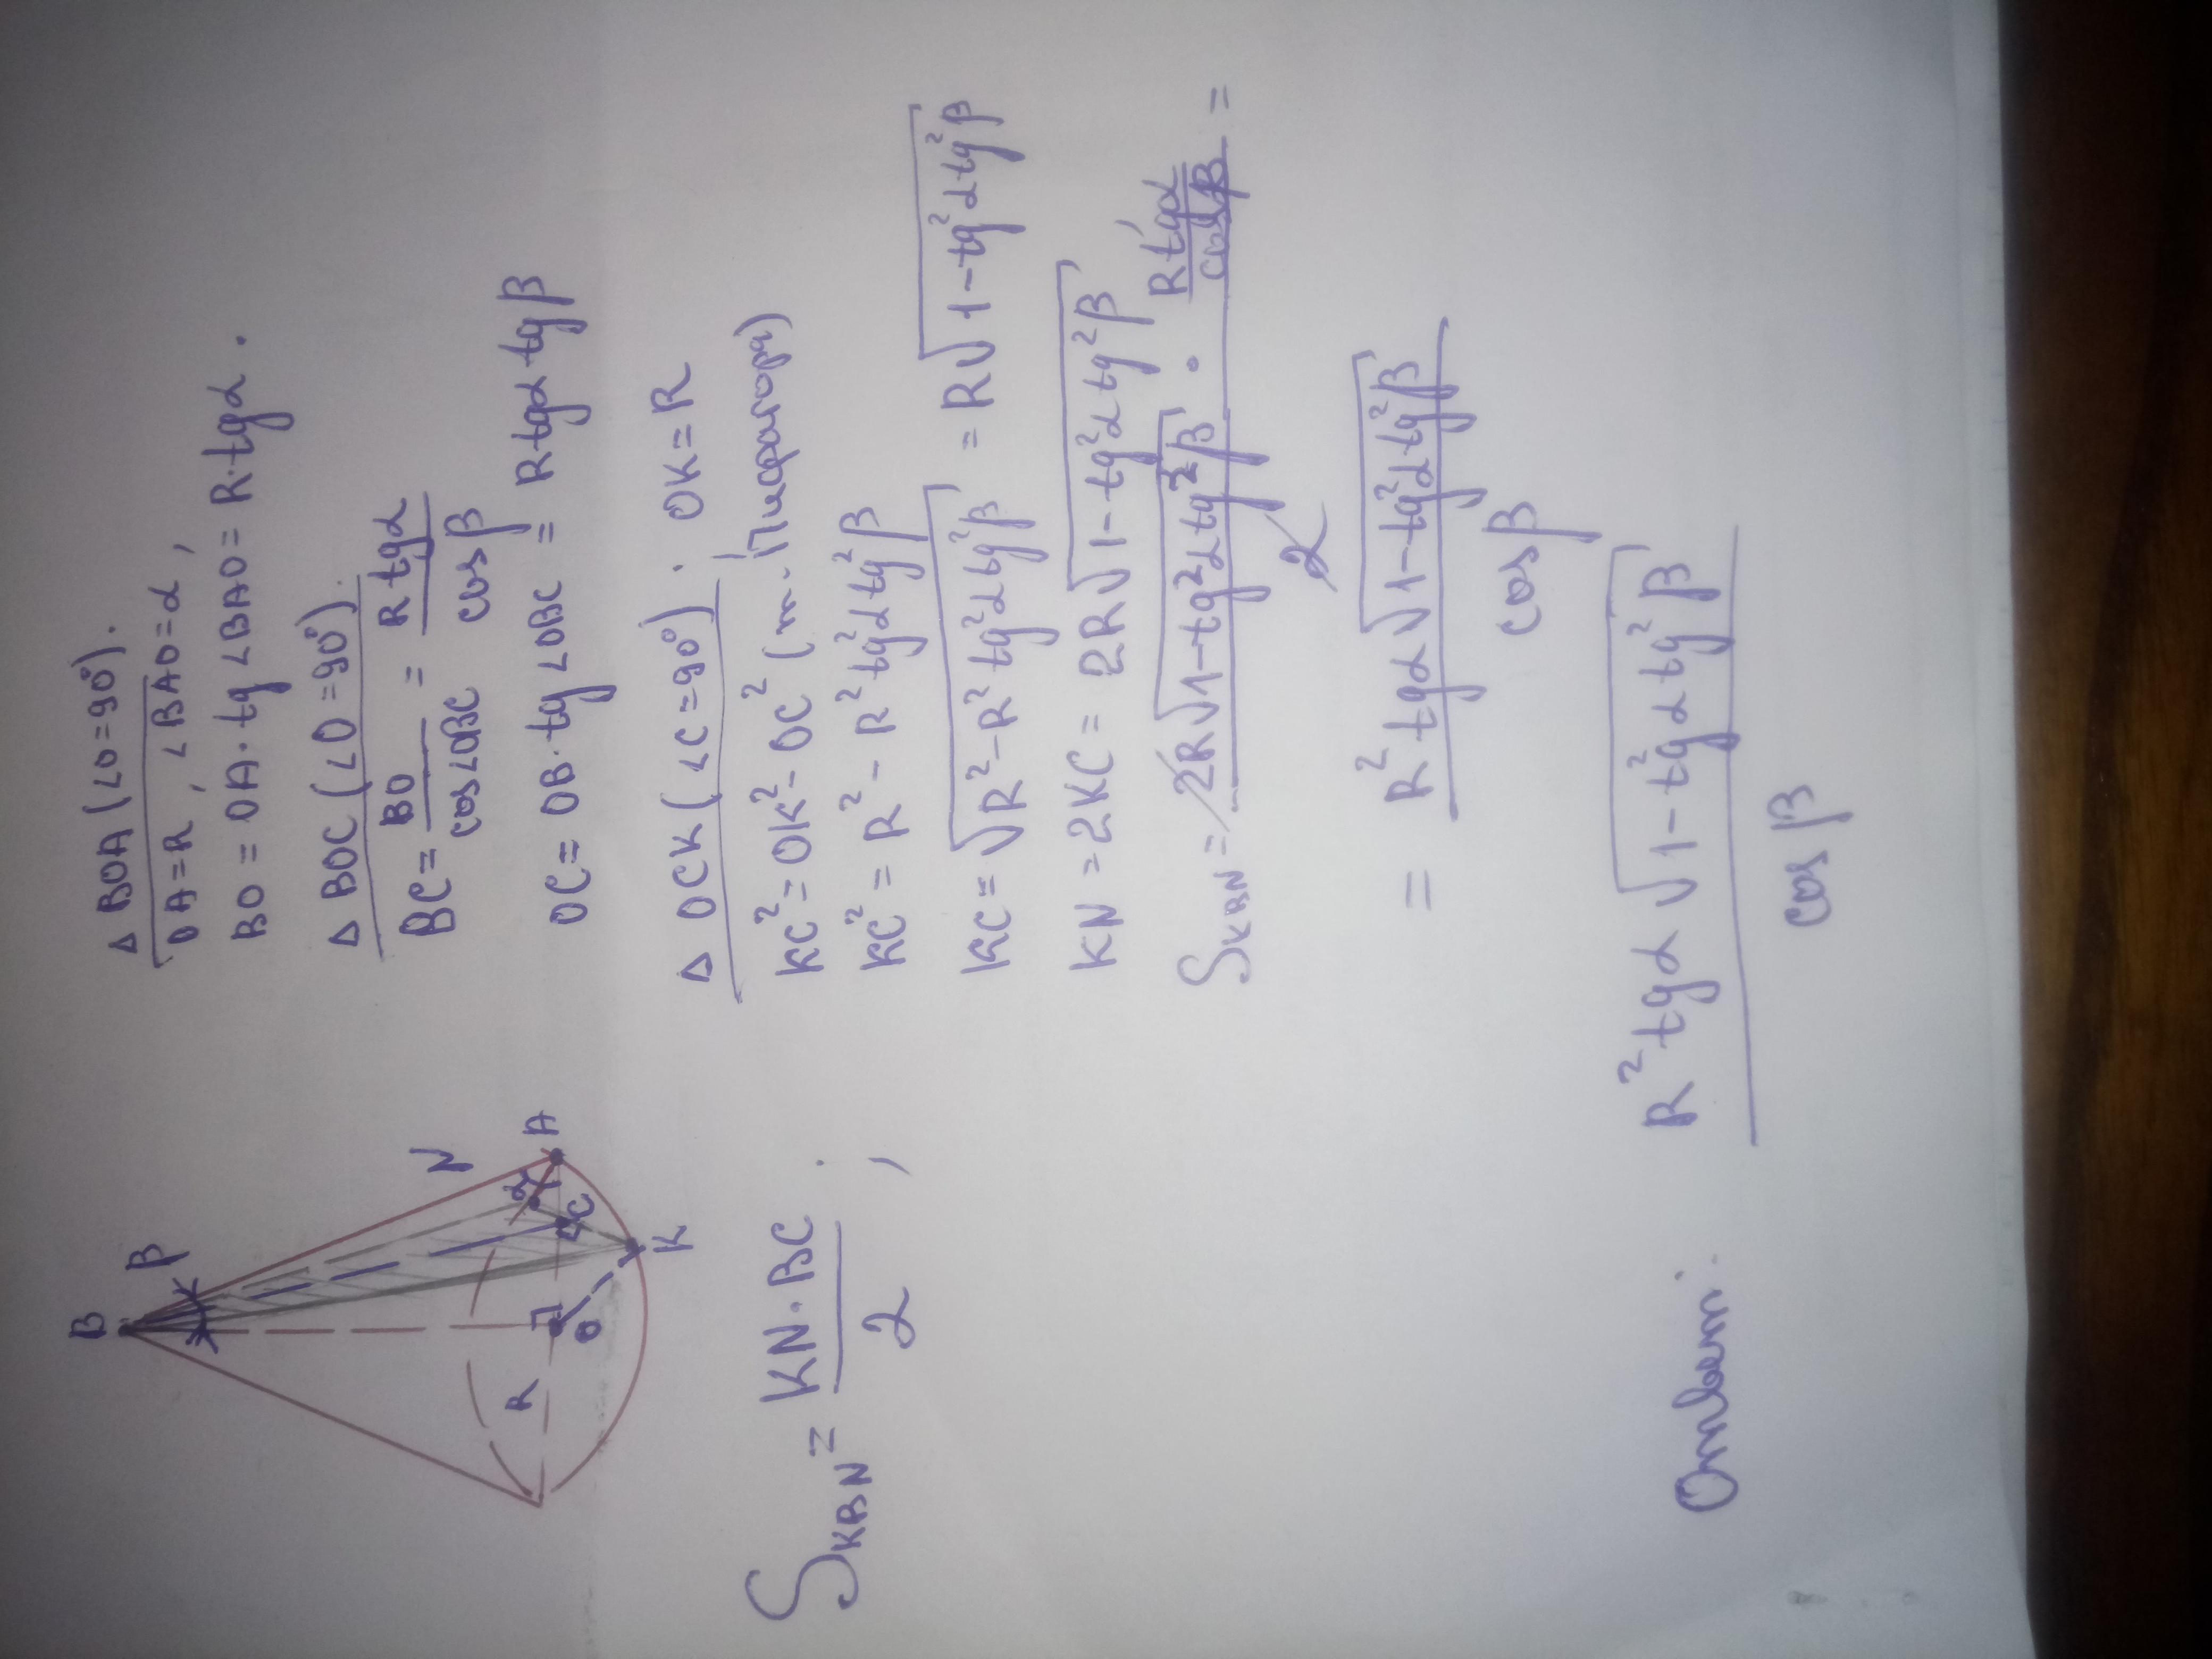 B
β
R
O
C
α
A
N
K
△ BOA (∠O=90°).
OA=R, ∠BAO=α,
BO = OA·tg∠BAO = R·tgα.
△ BOC (∠O=90°)
BC = BO/cos∠OBC = R tgα/cosβ
OC = OB·tg∠OBC = R tgα tgβ
△ OCK (∠C=90°). OK=R
KC² = OK² - OC² (т. Пифагора)
KC² = R² - R² tg²α tg²β
KC = √(R² - R² tg²α tg²β) = R√(1 - tg²α tg²β)
KN = 2KC = 2R√(1 - tg²α tg²β)
S_KBN = 2R√(1 - tg²α tg²β) · R tgα/cosβ / 2 =
= R² tgα √(1 - tg²α tg²β) / cosβ
S_KBN = KN·BC/2;
Ответ: R² tgα √(1 - tg²α tg²β) / cosβ